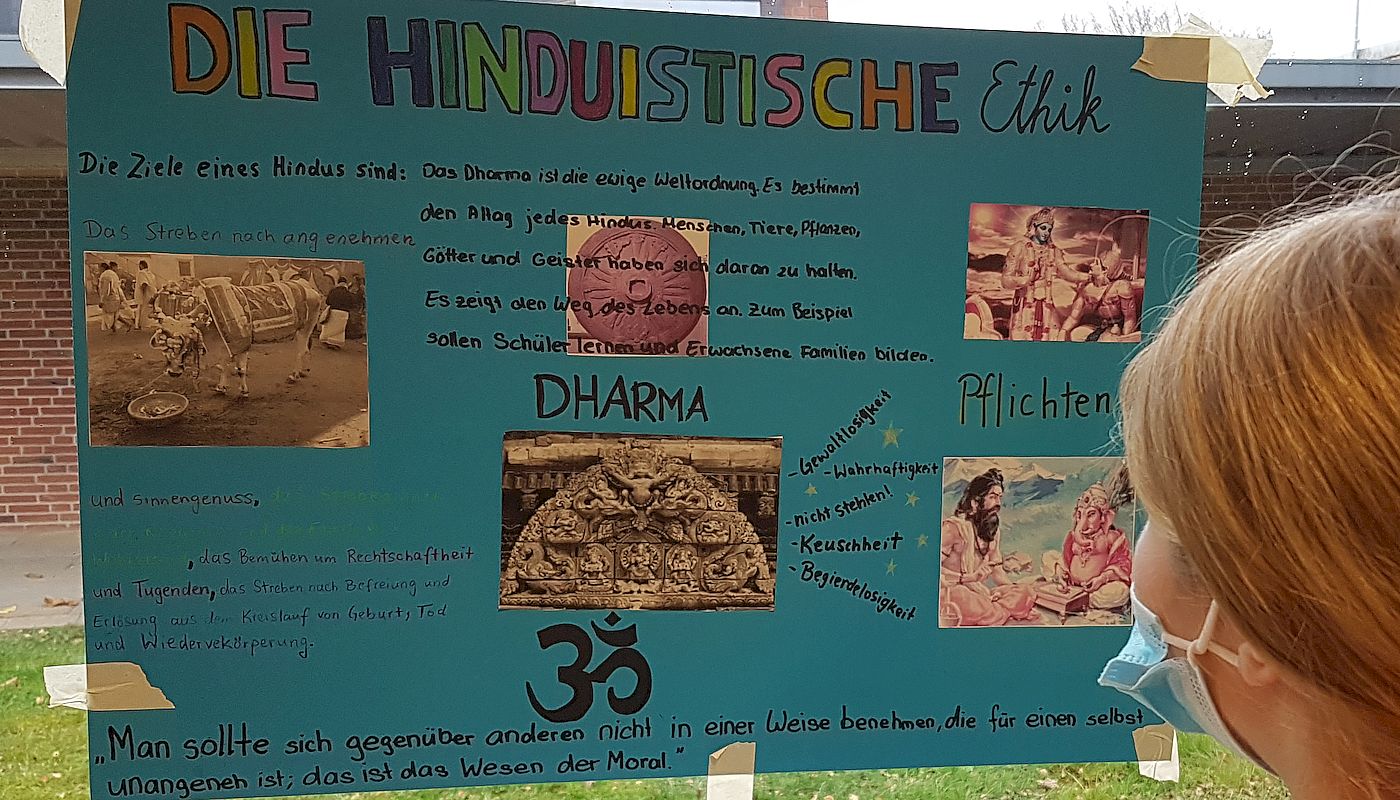 DIE HINDUISTISCHE Ethik
Die Ziele eines Hindus sind:
Das Streben nach angenehmen
und sinnengenuss,
, das Bemühen um Rechtschaftheit
und Tugenden, das Streben nach Befreiung und
Erlösung aus dem Kreislauf von Geburt, Tod
und Wiedervekörperung.
Das Dharma ist die ewige Weltordnung. Es bestimmt
den Alltag jedes Hindus. Menschen, Tiere, Pflanzen,
Götter und Geister haben sich daran zu halten.
Es zeigt den Weg des Lebens an. Zum Beispiel
sollen Schüler lernen und Erwachsene Familien bilden.
DHARMA
ॐ
Pflichten
- Gewaltlosigkeit
- Wahrhaftigkeit
- nicht stehlen!
- Keuschheit
- Begierdelosigkeit
„Man sollte sich gegenüber anderen nicht in einer Weise benehmen, die für einen selbst
unangeneh ist; das ist das Wesen der Moral."